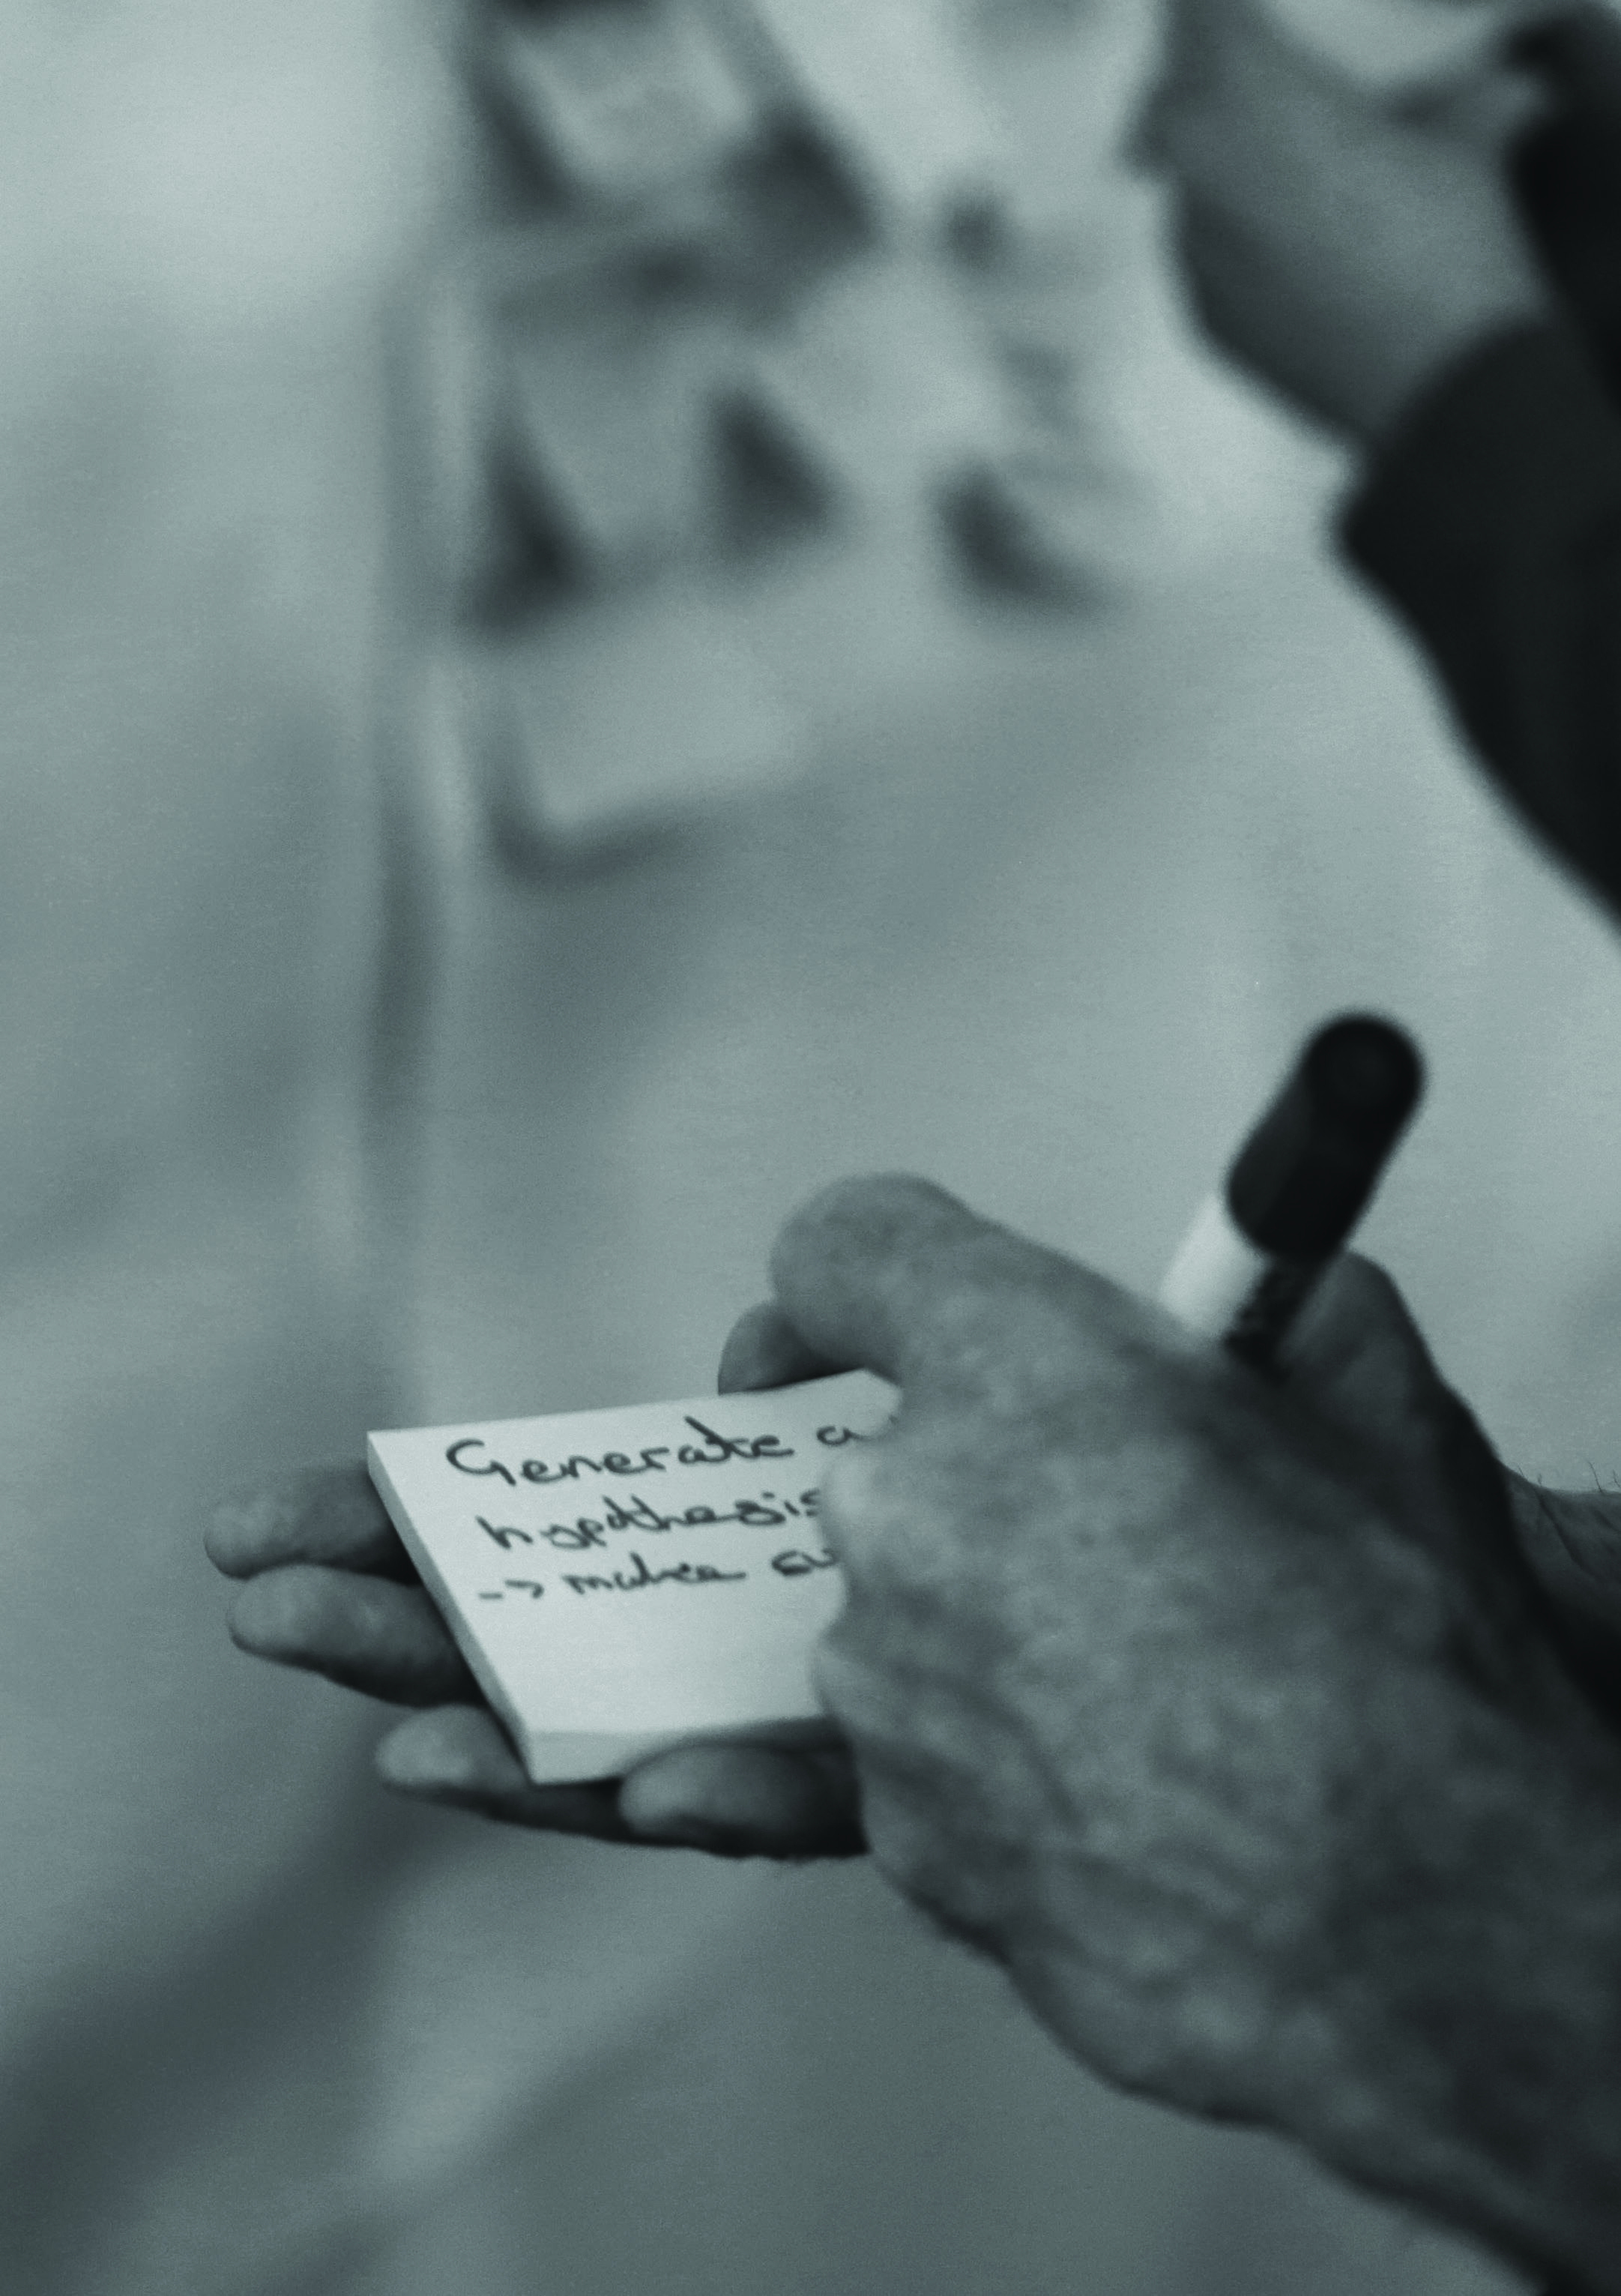 Generate a
hypothesis
-> make su